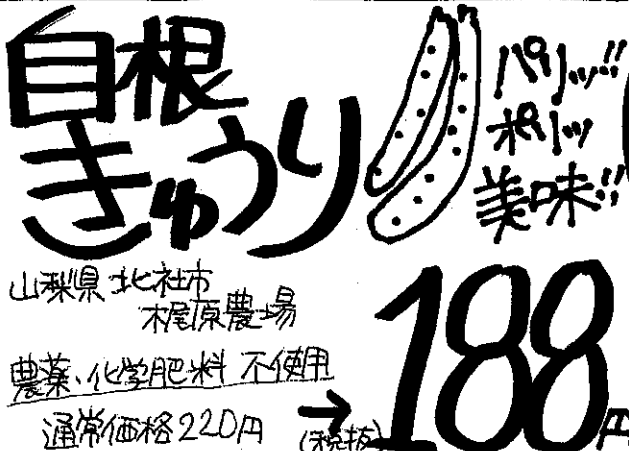 自根
きゅうり
パリッ!!
ポリッ
美味!!
山梨県 北杜市
梶原農場
農薬、化学肥料 不使用
通常価格220円 → (税抜) 188円